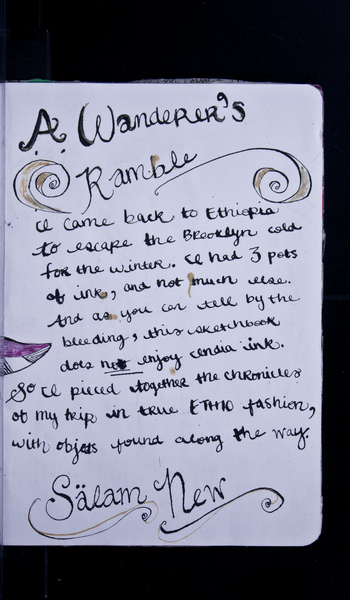 A Wanderer's
Ramble
I came back to Ethiopia
to escape the Brooklyn cold
for the winter. I had 3 pots
of ink, and not much else.
And as you can tell by the
bleeding, this sketchbook
does not enjoy india ink.
So I pieced together the chronicles
of my trip in true ETHIO fashion,
with objets found along the way.
Sälam New